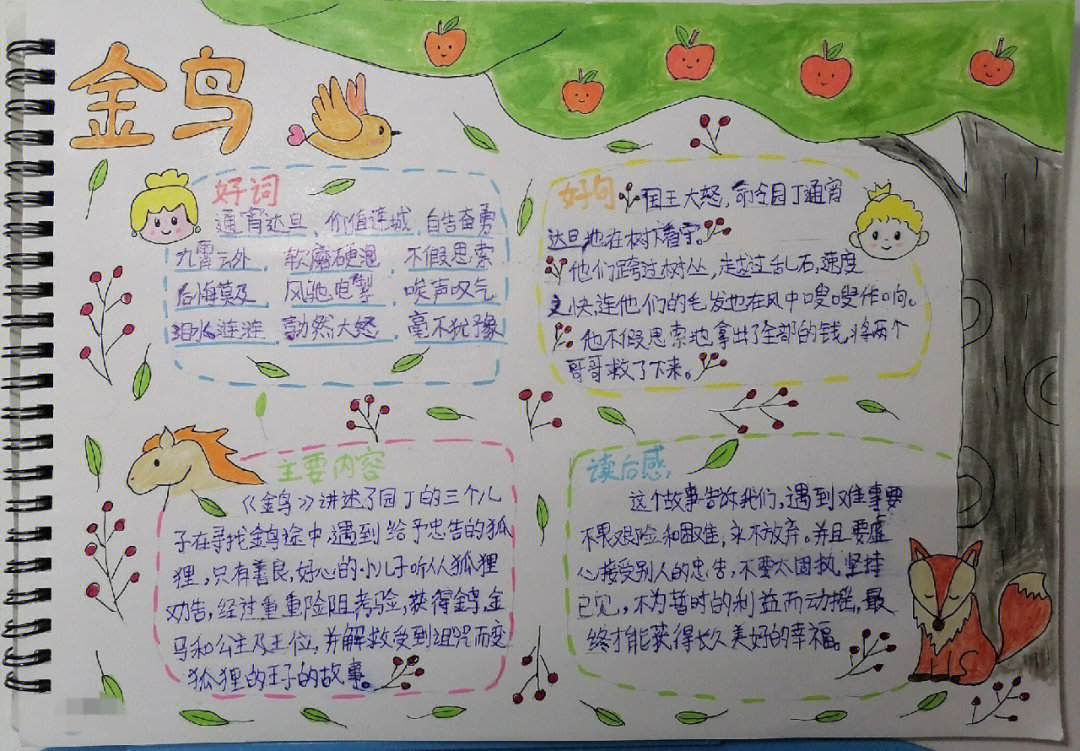 金鸟
好词
通宵达旦、价值连城、自告奋勇
九霄云外、软磨硬泡、不假思索
后悔莫及、风驰电掣、唉声叹气
泪水涟涟、勃然大怒、毫不犹豫
好句
国王大怒，命令园丁通宵
达旦地在树下看守。
他们跨过树丛，走过乱石，速度
之快，连他们的毛发也在风中嗖嗖作响。
他不假思索地拿出了全部的钱，将两个
哥哥救了下来。
主要内容
《金鸟》讲述了园丁的三个儿
子在寻找金鸟途中遇到给予忠告的狐
狸，只有善良，好心的小儿子听从狐狸
劝告，经过重重险阻考验，获得金鸟、金
马和公主及王位，并解救受到诅咒而变
狐狸的王子的故事。
读后感
这个故事告诉我们，遇到难事要
不畏艰险和困难，永不放弃。并且要虚
心接受别人的忠告，不要太固执，坚持
己见，不为暂时的利益而动摇，最
终才能获得长久美好的幸福。